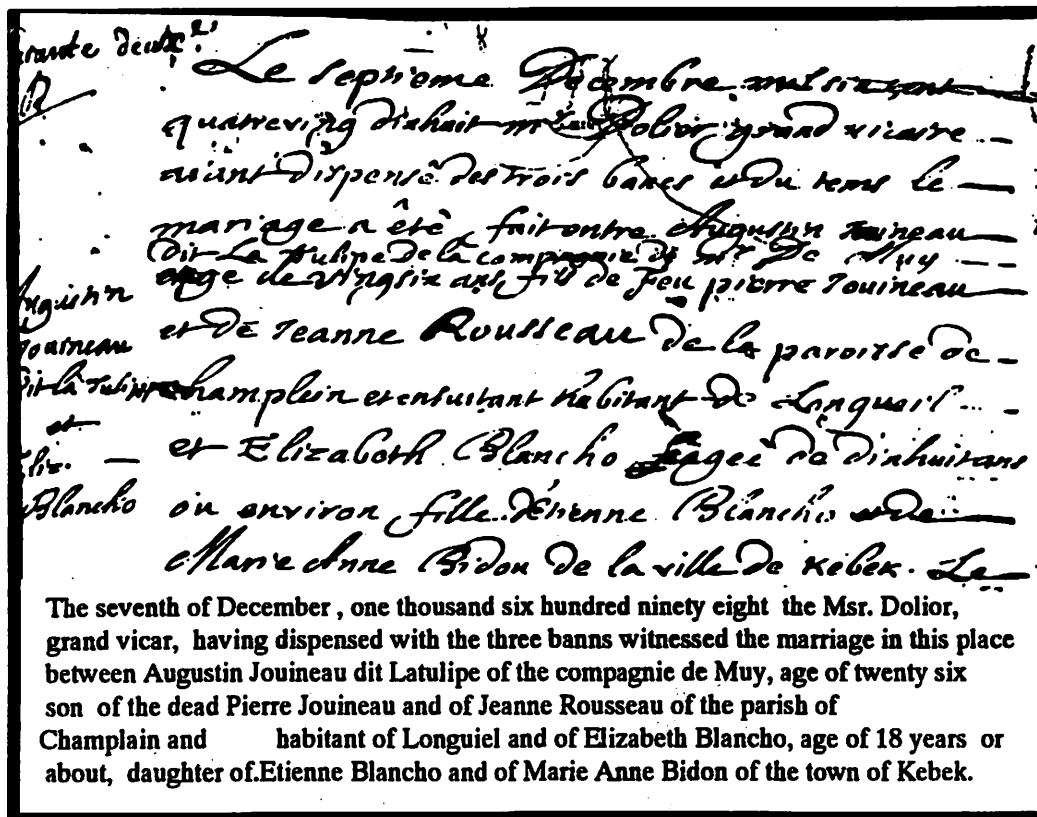 arante deux.e
Le septieme Decembre mil six cent
quatreving dixhuit mr Dolior grand vicaire
aiant dispensé des trois bancs et du tems le
mariage a êtê fait entre Augustin Jouineau
dit La Tulipe de la compagnie de mr De Muy
age de vingsix ans, fils de Feu pierre Jouineau
et de Jeanne Rousseau de la paroisse de
champlein et ensuitant habitant de Longueil
et Elizabeth Blancho agée de dixhuitans
ou environ fille d'étienne Blancho et de
Marie Anne Bidou de la ville de Kebek. Le
Augustin
Jouineau
dit la Tulippe
et
Eliz.
Blancho
The seventh of December , one thousand six hundred ninety eight the Msr. Dolior,
grand vicar, having dispensed with the three banns witnessed the marriage in this place
between Augustin Jouineau dit Latulipe of the compagnie de Muy, age of twenty six
son of the dead Pierre Jouineau and of Jeanne Rousseau of the parish of
Champlain and habitant of Longuiel and of Elizabeth Blancho, age of 18 years or
about, daughter of.Etienne Blancho and of Marie Anne Bidon of the town of Kebek.